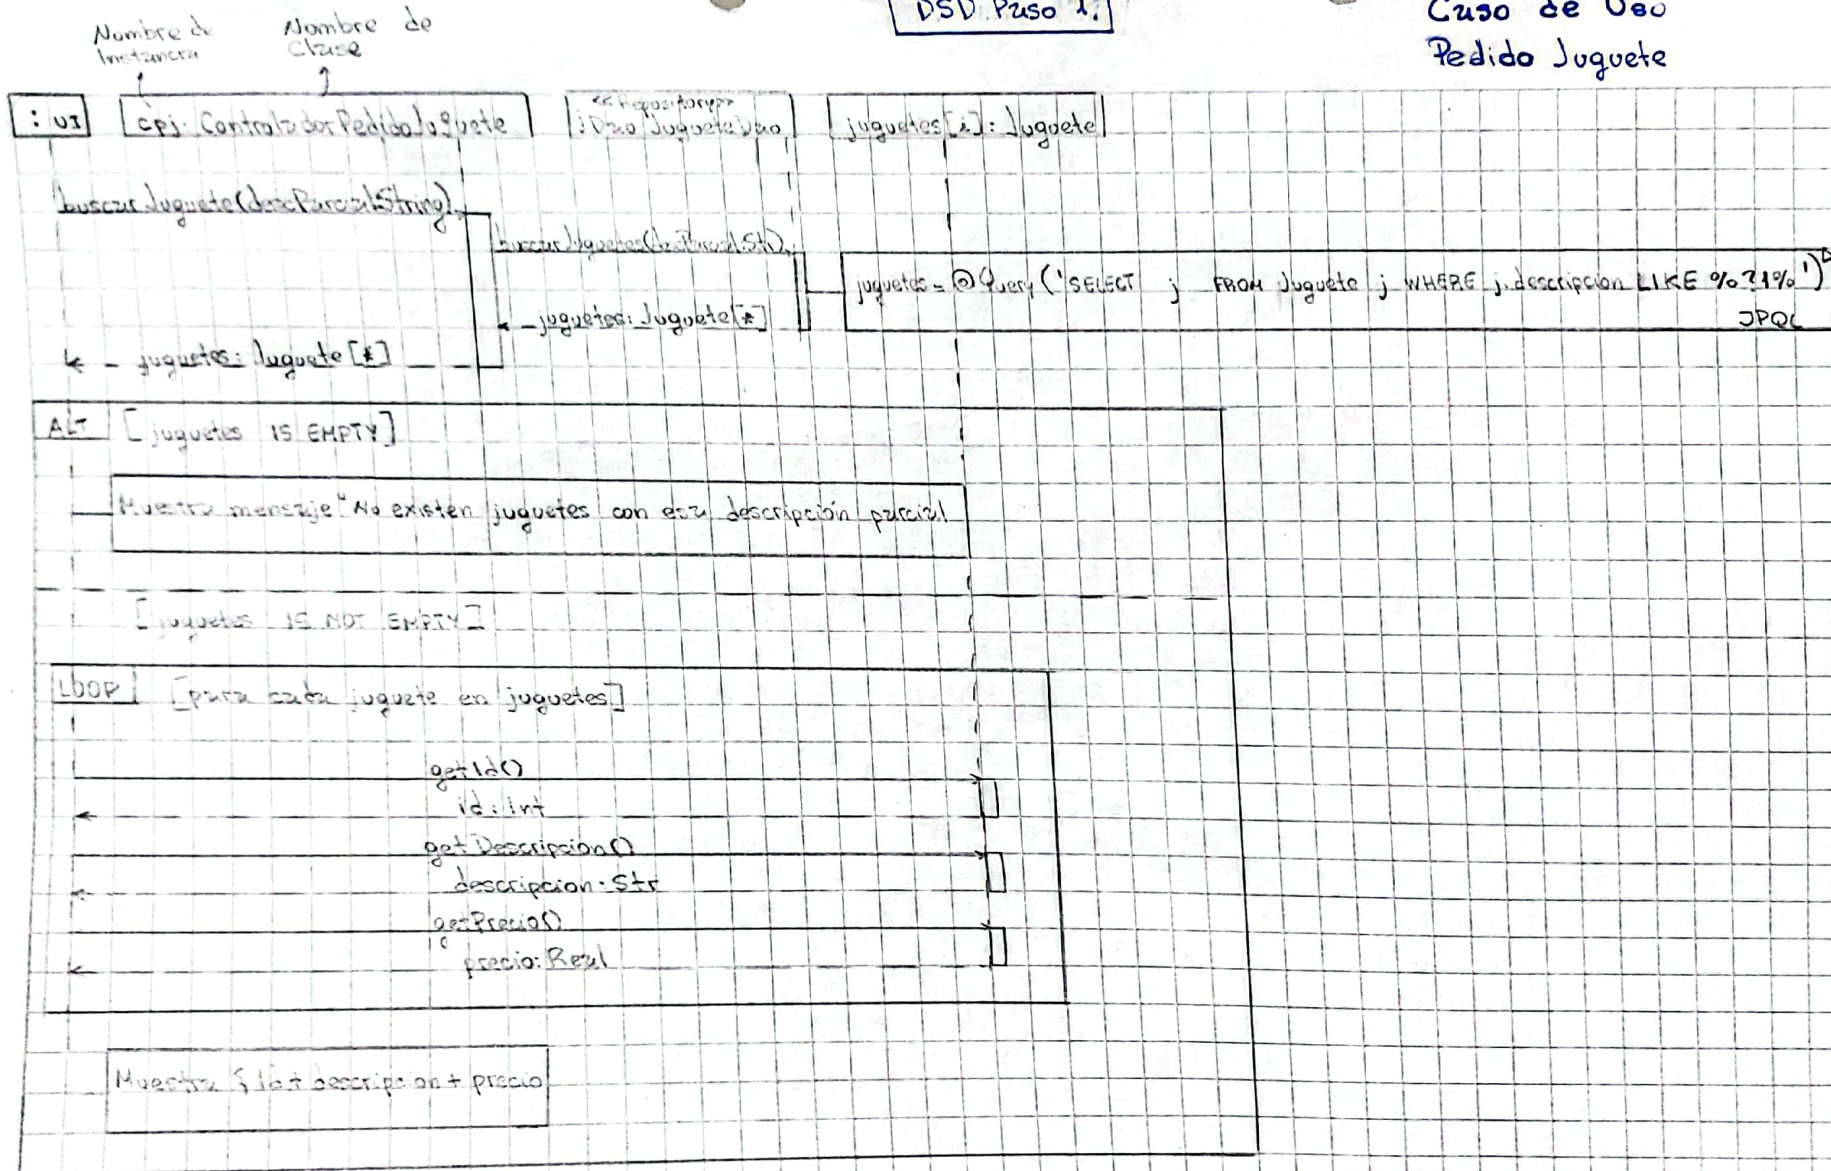 DSD Paso 1.
Caso de Uso
Pedido Juguete
Nombre de Instancia
Nombre de Clase
: UI
cpj: ControladorPedidoJuguete
<<Repository>>
jDao JugueteDao
juguetes[i]: Juguete
buscarJuguete(descParcial:String)
buscarJuguetes(descParcial:Str)
juguetes = @Query ('SELECT j FROM Juguete j WHERE j.descripcion LIKE %?1%')
JPQL
juguetes: Juguete[*]
juguetes: Juguete[*]
ALT [juguetes IS EMPTY]
Muestra mensaje "No existen juguetes con esa descripción parcial
[juguetes IS NOT EMPTY]
LOOP [para cada juguete en juguetes]
getId()
id: int
getDescripcion()
descripcion: Str
getPrecio()
precio: Real
Muestra { id + descripcion + precio